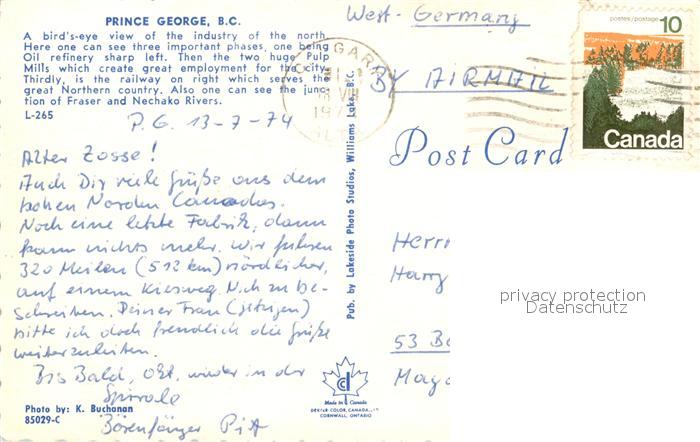 PRINCE GEORGE, B.C.
A bird's-eye view of the industry of the north.
Here one can see three important phases, one being
Oil refinery sharp left. Then the two huge Pulp
Mills which create great employment for the city.
Thirdly, is the railway on right which serves the
great Northern country. Also one can see the junc-
tion of Fraser and Nechako Rivers.
L-265
P.G. 13-7-74
Alter Zosse!
Auch Dir viele Grüße aus dem
hohen Norden Canadas.
Noch eine letzte Fabrik, dann
kann nichts mehr. Wir fuhren
320 Meilen (512 km) nördlicher,
auf einem Kiesweg. N. zu be-
schreiben. Deiner Frau
bitte ich doch freundlich die Grüße
weiterzuleiten.
Bis Bald, Okt. wieder in der
Spirale
Bärenfänger Pit
Photo by: K. Buchanan
85029-C
Pub. by Lakeside Photo Studios, Williams Lake, B.C.
Made in Canada
DEXTER COLOR, CANADA
CORNWALL, ONTARIO
West-Germany
BY AIRMAIL
CALGARY
postes/postage 10
Canada
Post Card
Herrn
Harry
53 Bo
privacy protection
Datenschutz